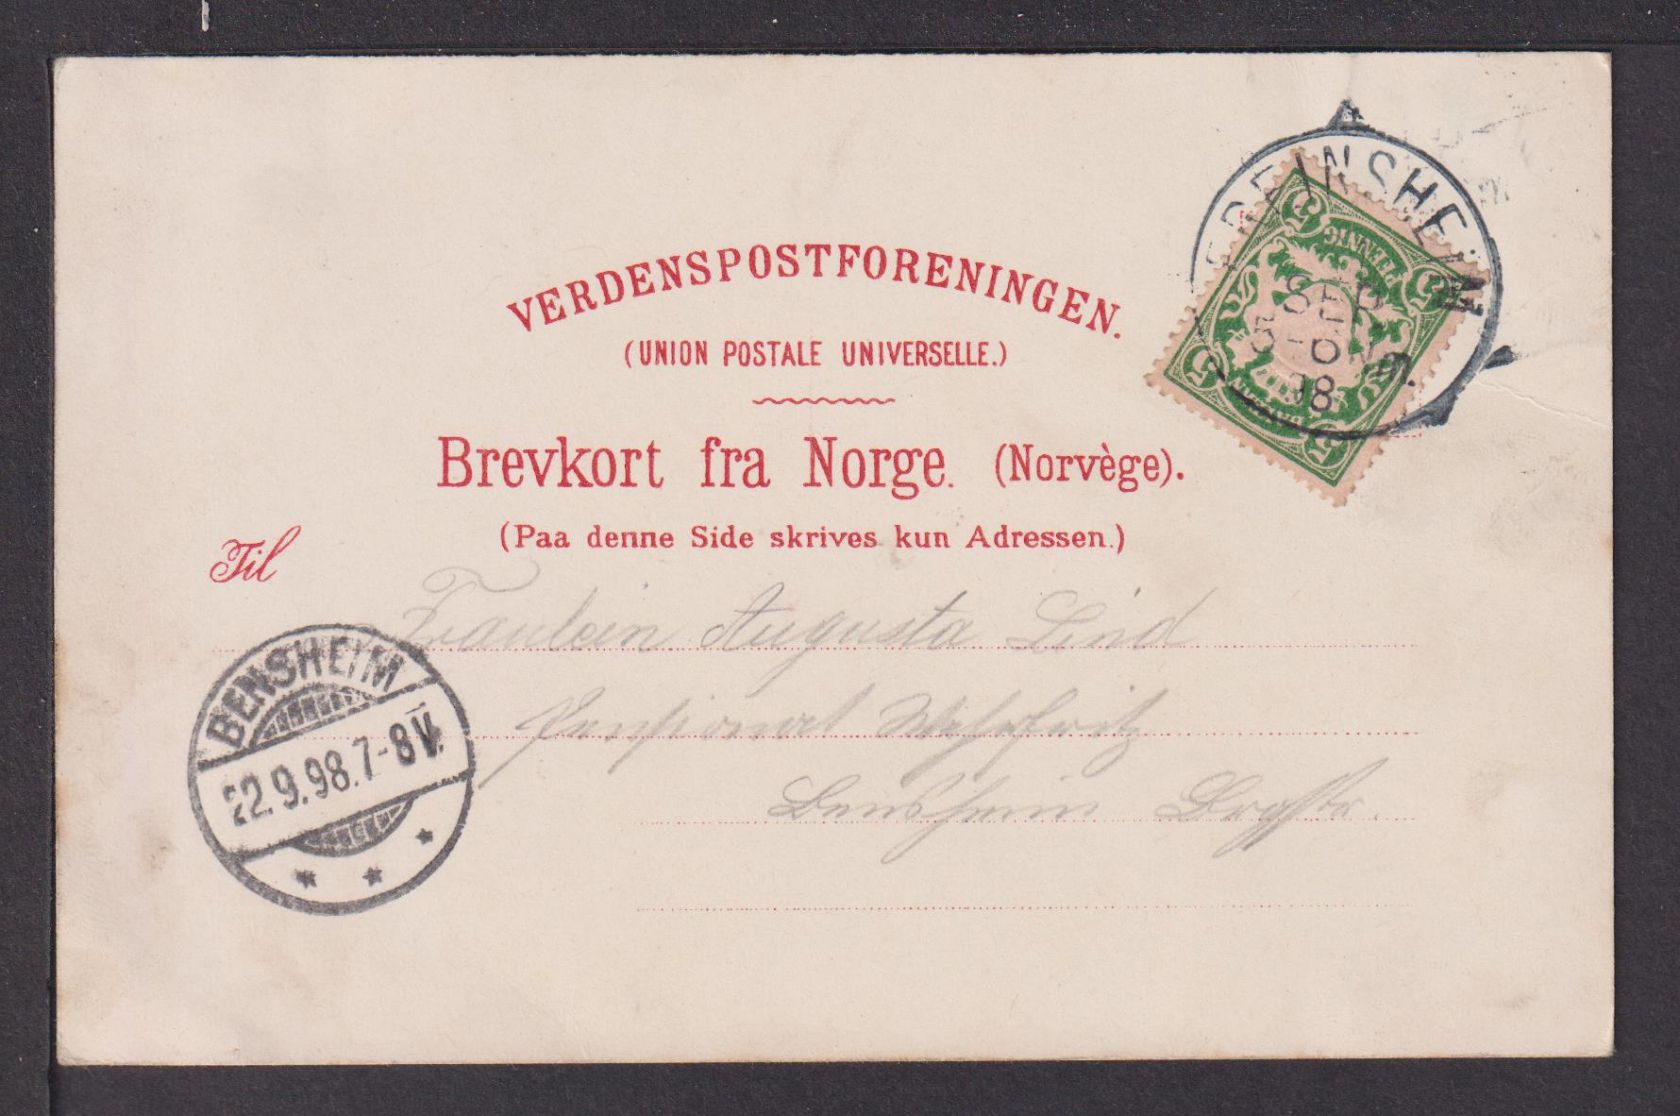 VERDENSPOSTFORENINGEN.
(UNION POSTALE UNIVERSELLE.)
Brevkort fra Norge. (Norvège).
(Paa denne Side skrives kun Adressen.)
Til
Fräulein Augusta Lind
Pensionat Wehrfritz
Bensheim Bergstr.
BENSHEIM
22.9.98.7-8V.
5 5 5 5
PFENNIG
SEP
98